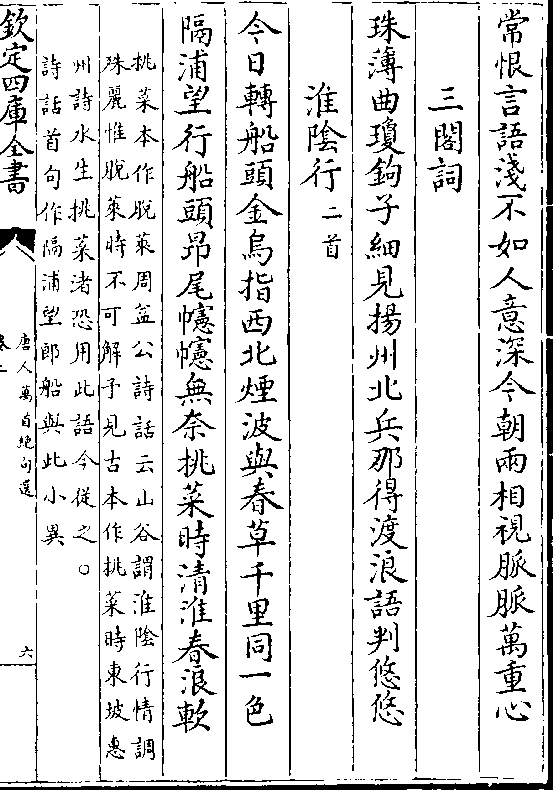 常恨言語淺不如人意深今朝兩相視脈脈萬重心
三閣詞
珠薄曲瓊鉤子細見揚州北兵那得渡浪語判悠悠
淮陰行二首
今日轉船頭金烏指西北煙波與春草千里同一色
隔浦望行船頭昻尾幰幰無奈挑菜時清淮春浪軟
挑菜本作脫萊周益公詩話云山谷謂淮陰行情調
殊麗惟脫萊時不可解予見古本作挑菜時東坡惠
州詩水生挑菜渚恐用此語今從之○
詩話首句作隔浦望郎船與此小異
欽定四庫全書
唐人萬首絶句選
卷二
六